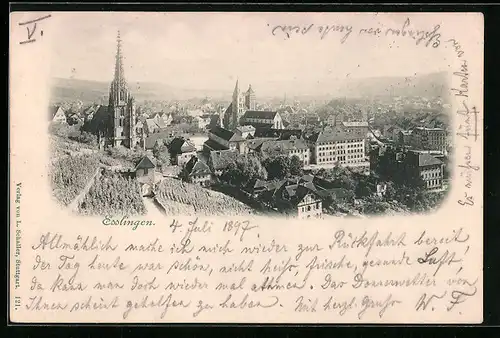 V.
Esslingen.
4. Juli 1897.
Allmählich mache ich mich wieder zur Rückfahrt bereit
der Tag heute war schön, nicht heiß, frische, gesunde Luft
Da kann man doch wieder mal atmen. Das Donnerwetter von
Ihnen scheint geholfen zu haben. Mit herzl. Gruss W. F.
Es müssen fünf Karten
Verlag von L. Schaller, Stuttgart. 121.